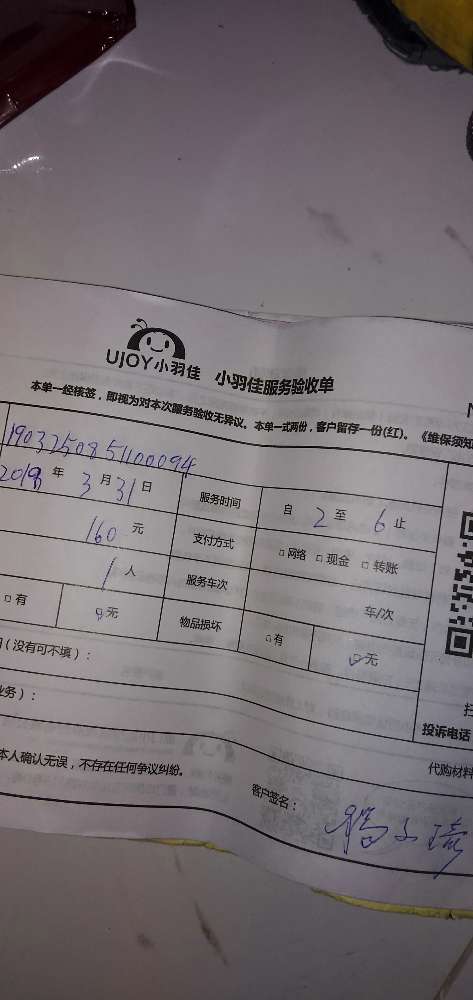 UJOY小羽佳 小羽佳服务验收单
本单一经核签，即视为对本次服务验收无异议。本单一式两份，客户留存一份(红)。《维保须知
1903250851100094
2019年3月31日 服务时间 自2至6止
160元 支付方式 □网络 □现金 □转账
1人 服务车次 车/次
□有 □无 物品损坏 □有 □无
(没有可不填)：
业务)：
投诉电话
代购材料
本人确认无误，不存在任何争议纠纷。
客户签名：